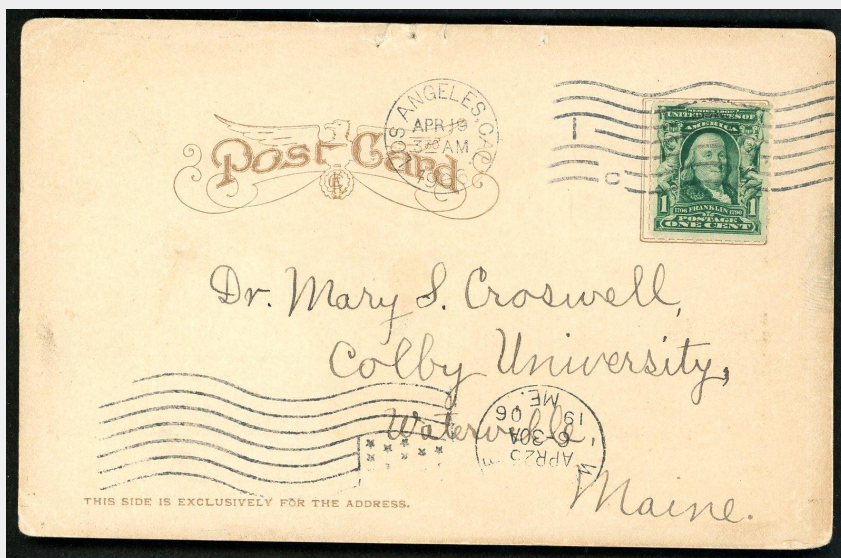 Post Card
LOS ANGELES, CAL.
APR 19
3 30 AM
1906
1
C
SERIES 1902
UNITED STATES OF
AMERICA
1706 FRANKLIN 1790
1 POSTAGE 1
ONE CENT
Dr. Mary S. Croswell,
Colby University,
Waterville,
Maine.
APR 25
6-30A
19 06
ME.
THIS SIDE IS EXCLUSIVELY FOR THE ADDRESS.